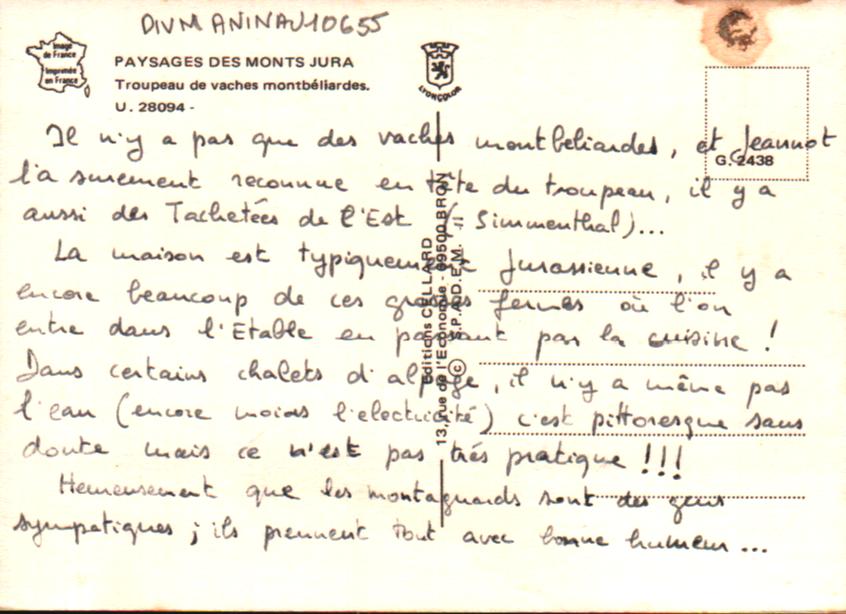 DIVMANINAV10655
Image
de France
Imprimée
en France
PAYSAGES DES MONTS JURA
Troupeau de vaches montbéliardes.
U. 28094 -
LYONCOLOR
G. 2438
Il n'y a pas que des vaches montbeliardes, et Jeannot
l'a surement reconnue en tête du troupeau, il y a
aussi des Tachetées de l'Est (Simmenthal)...
La maison est typiquement Jurassienne, il y a
encore beaucoup de ces grosses fermes où l'on
entre dans l'Etable en passant par la cuisine !
Dans certains chalets d'alpage, il n'y a même pas
l'eau (encore moins l'electricité) c'est pittoresque sans
doute mais ce n'est pas très pratique !!!
Heureusement que les montagnards sont des gens
sympatiques ; ils prennent tout avec bonne humeur...
Editions CELLARD
13, rue de l'Economie - 69500 BRON
© S.P.A.D.E.M.